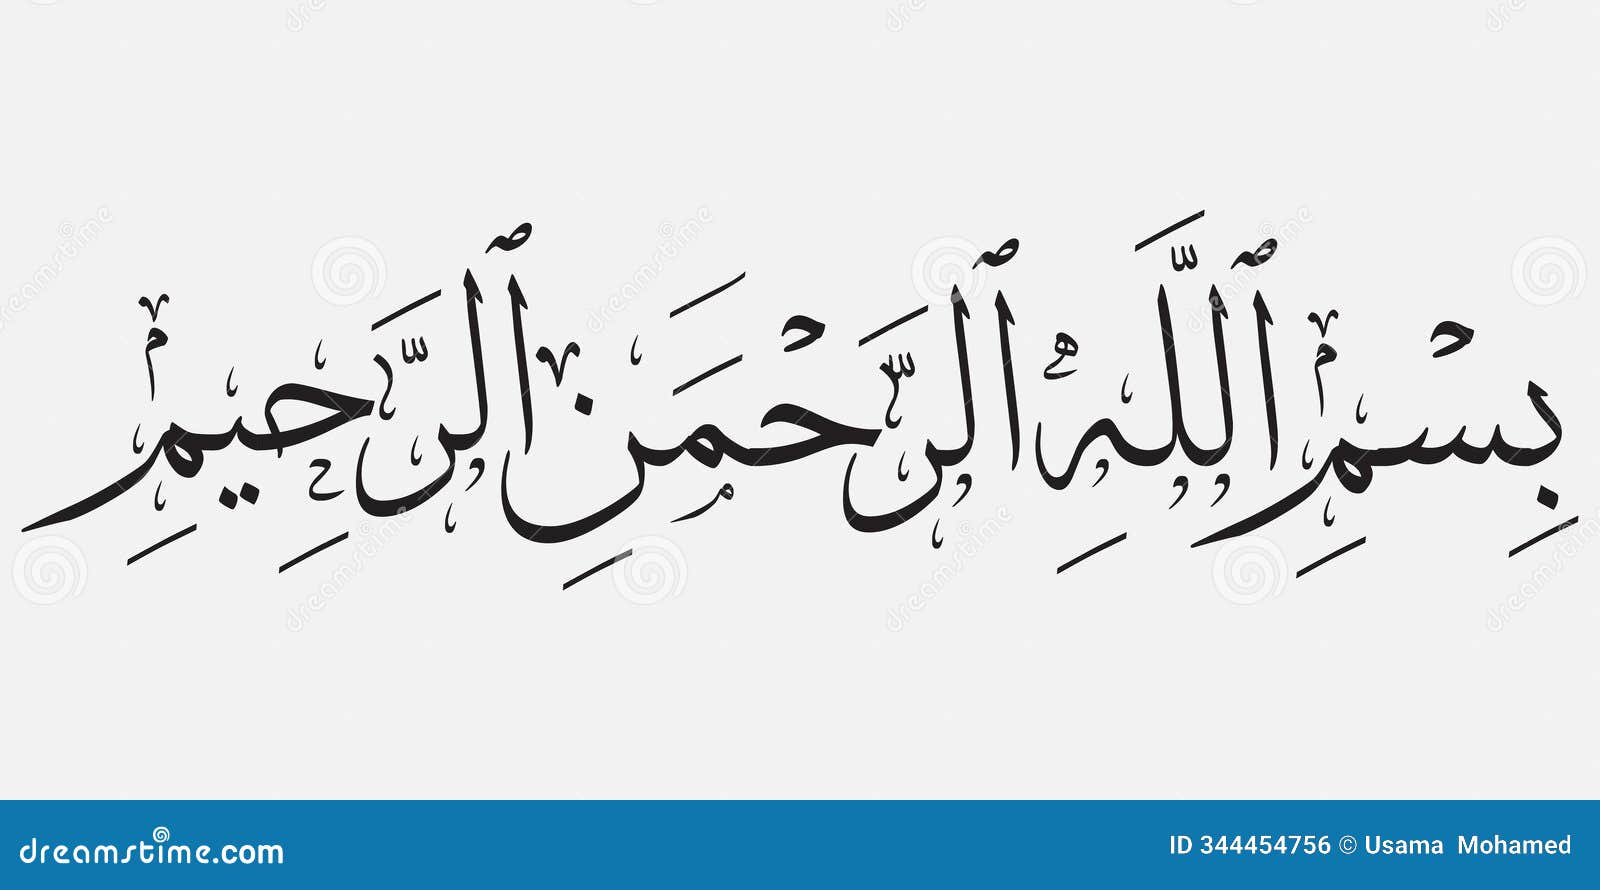 بِسْمِ ٱللَّهِ ٱلرَّحْمَنِ ٱلرَّحِيمِ
dreamstime.com
ID 344454756 © Usama Mohamed